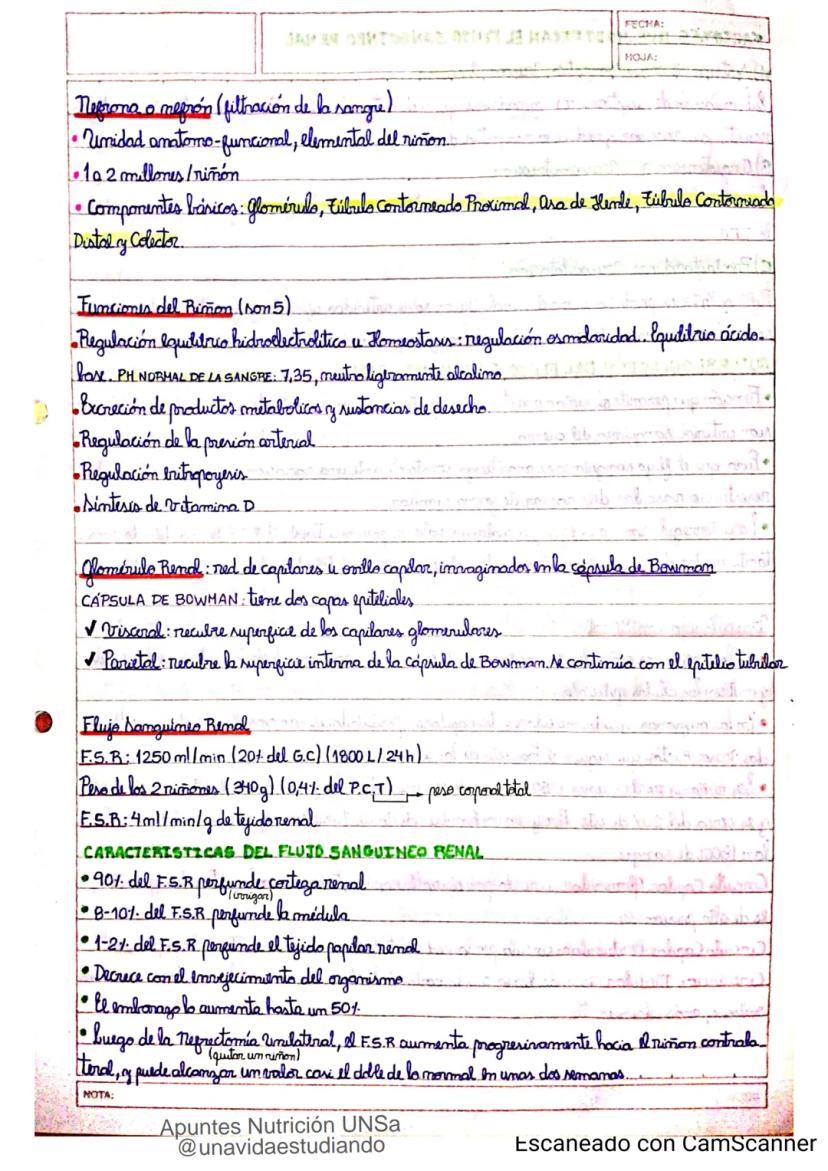 FECHA:
HOJA:
Nefrona o nefrón (filtración de la sangre)
• Unidad anatomo-funcional, elemental del riñon.
• 1 a 2 millones/riñón
• Componentes básicos: Glomérulo, Túbulo Contorneado Proximal, Asa de Henle, Túbulo Contorneado
Distal y Colector.
Funciones del Riñon (son 5)
• Regulación equilibrio hidroelectrolítico u Homeostasis: regulación osmolaridad. Equilibrio ácido-
base. PH NORMAL DE LA SANGRE: 7,35, neutro ligeramente alcalino.
• Excreción de productos metabolicos y sustancias de desecho.
• Regulación de la presión arterial
• Regulación Eritropoyesis
• Síntesis de Vitamina D
Glomérulo Renal: red de capilares u ovillo capilar, invaginados en la cápsula de Bowman
CÁPSULA DE BOWMAN: tiene dos capas epiteliales
✓ Visceral: recubre superfice de los capilares glomerulares
✓ Parietal: recubre la superficie interna de la cápsula de Bowman. Se continúa con el epitelio tubular
Flujo Sanguineo Renal
F.S.R: 1250 ml/min (20% del G.C) (1800 L/24h)
Peso de los 2 riñones (340g) (0,4% del P.C.T) → peso corporal total
F.S.R: 4ml/min/g de tejido renal
CARACTERISTICAS DEL FLUJO SANGUINEO RENAL
• 90% del F.S.R perfunde corteza renal
(irrigar)
• 8-10% del F.S.R perfunde la médula
• 1-2% del F.S.R perfunde el tejido papilar renal
• Decrece con el envejecimiento del organismo
• El embarazo lo aumenta hasta un 50%
• Luego de la Nefrectomía Unilateral, el F.S.R aumenta progresivamente hacia el riñon contrala-
(quitar un riñon)
teral, y puede alcanzar un valor casi el doble de lo normal en unas dos semanas.
NOTA:
Apuntes Nutrición UNSa
@unavidaestudiando
Escaneado con CamScanner